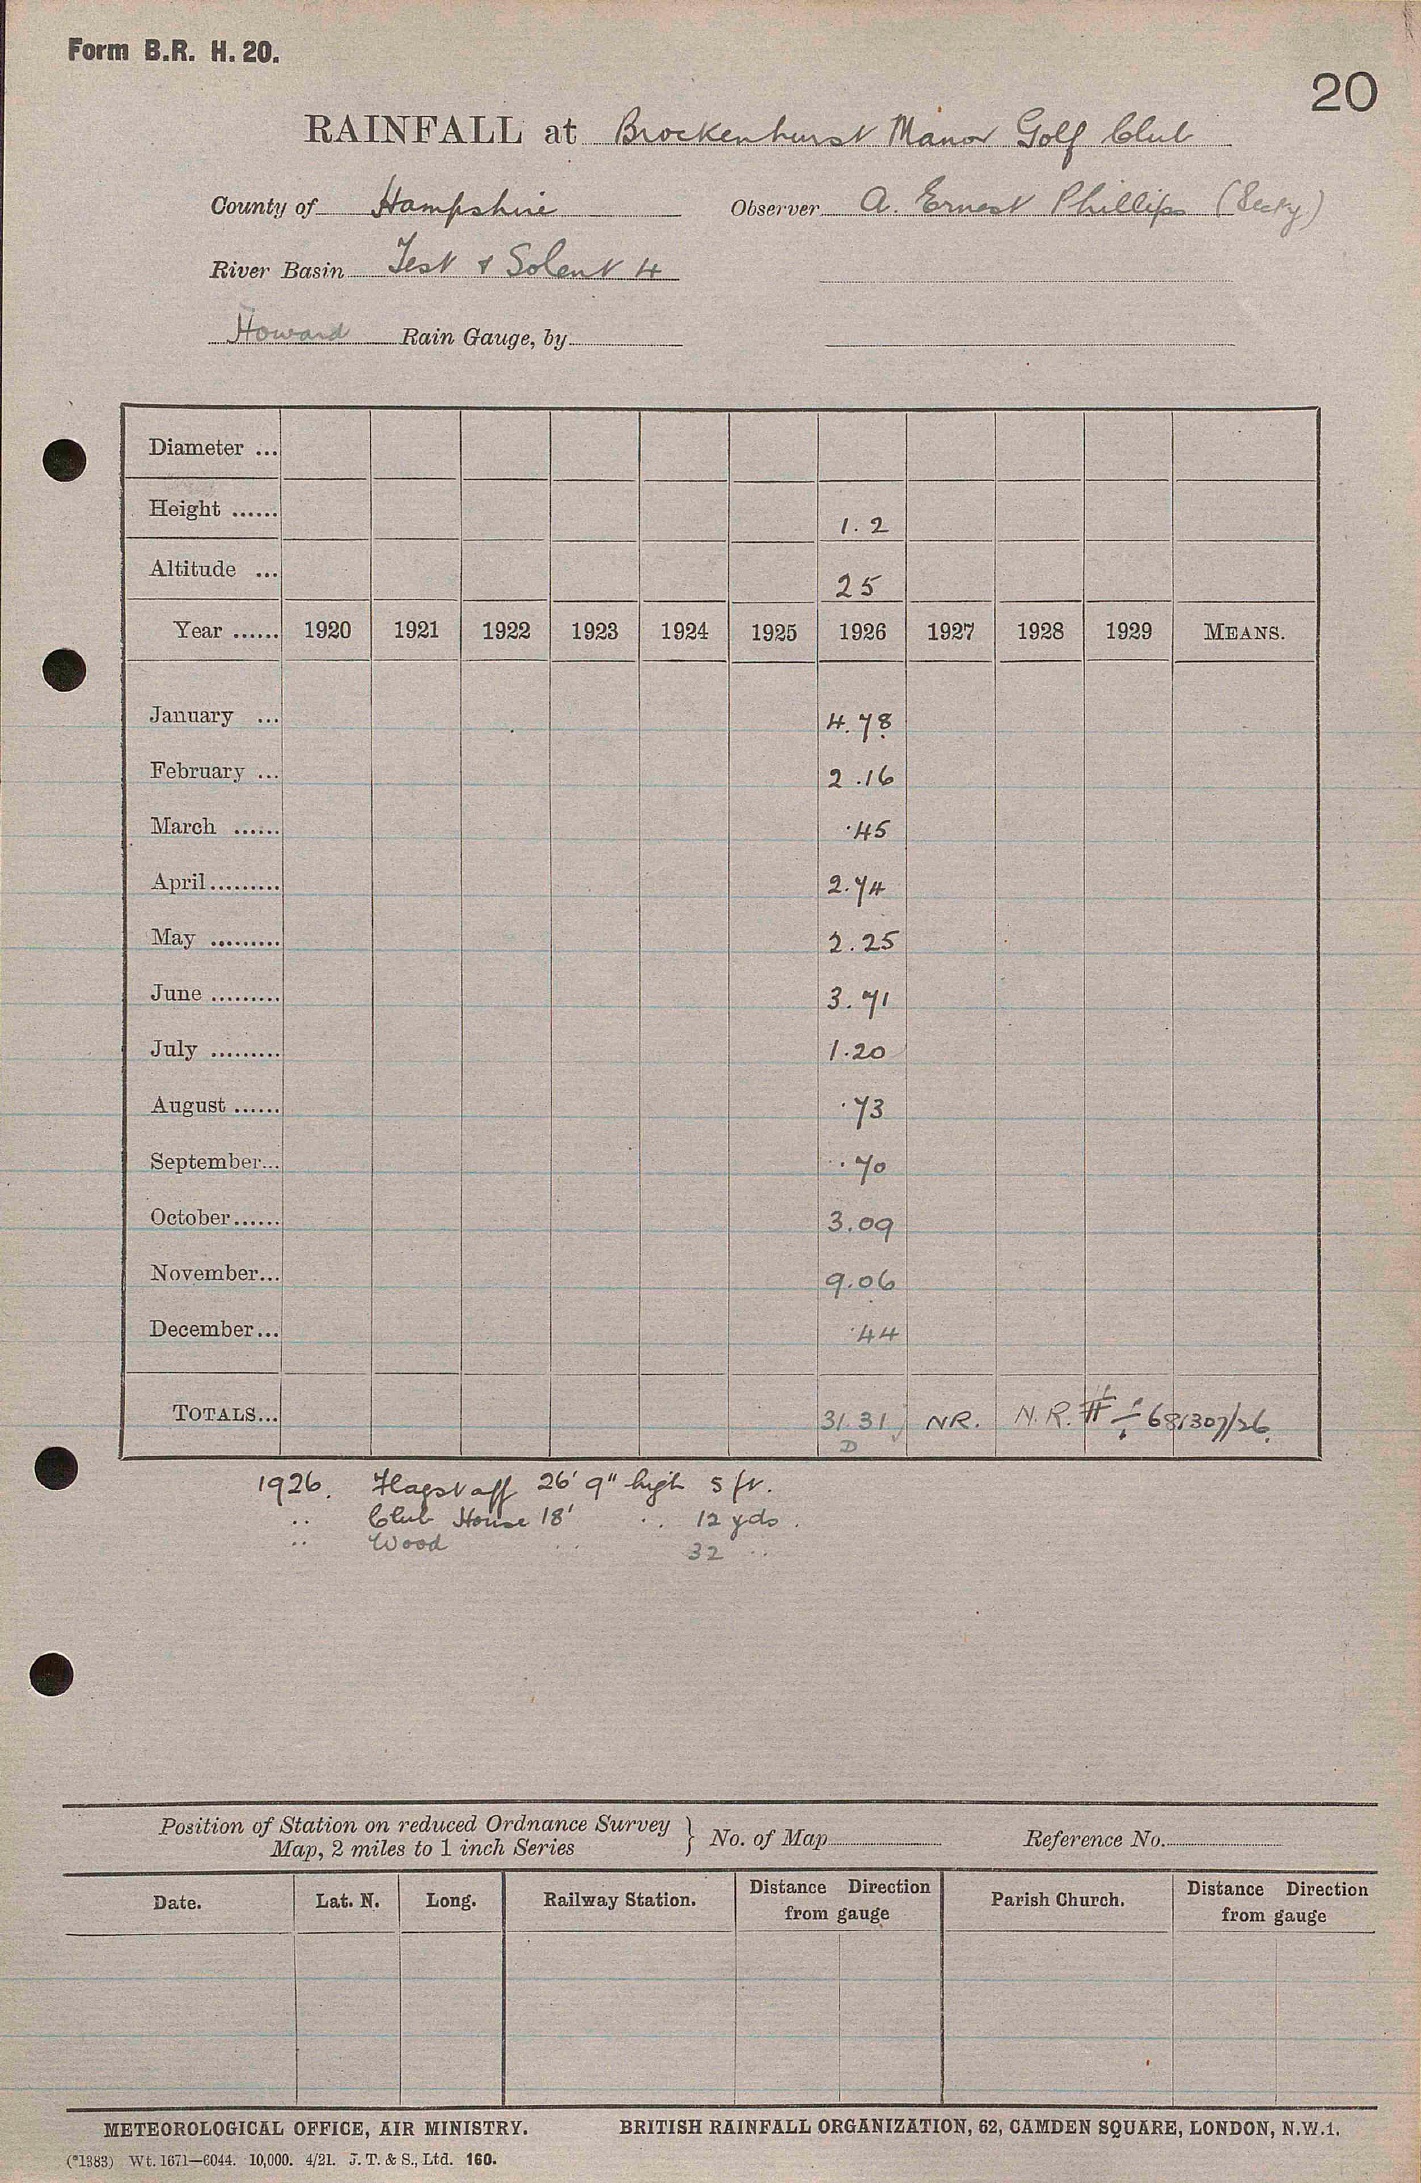 Form B.R. H. 20.
20
RAINFALL at Brockenhurst Manor Golf Club
County of Hampshire Observer A. Ernest Phillips (Secty)
River Basin Test & Solent 4
Howard Rain Gauge, by
Diameter ...
Height ...... 1.2
Altitude ... 25
Year ...... 1920 1921 1922 1923 1924 1925 1926 1927 1928 1929 MEANS.
January ... 4.78
February ... 2.16
March ...... .45
April ......... 2.74
May ......... 2.25
June ......... 3.71
July ......... 1.20
August ...... .73
September... .70
October...... 3.09
November... 9.06
December... .44
TOTALS... 31.31 NR. N.R.
D
1926. Flagstaff 26' 9" high 5 ft.
.. Club House 18' .. 12 yds.
.. Wood .. 32 ..
Position of Station on reduced Ordnance Survey
Map, 2 miles to 1 inch Series } No. of Map Reference No.
Date. Lat. N. Long. Railway Station. Distance Direction from gauge Parish Church. Distance Direction from gauge
METEOROLOGICAL OFFICE, AIR MINISTRY. BRITISH RAINFALL ORGANIZATION, 62, CAMDEN SQUARE, LONDON, N.W.1.
(*1383) Wt. 1671—6044. 10,000. 4/21. J. T. & S., Ltd. 160.